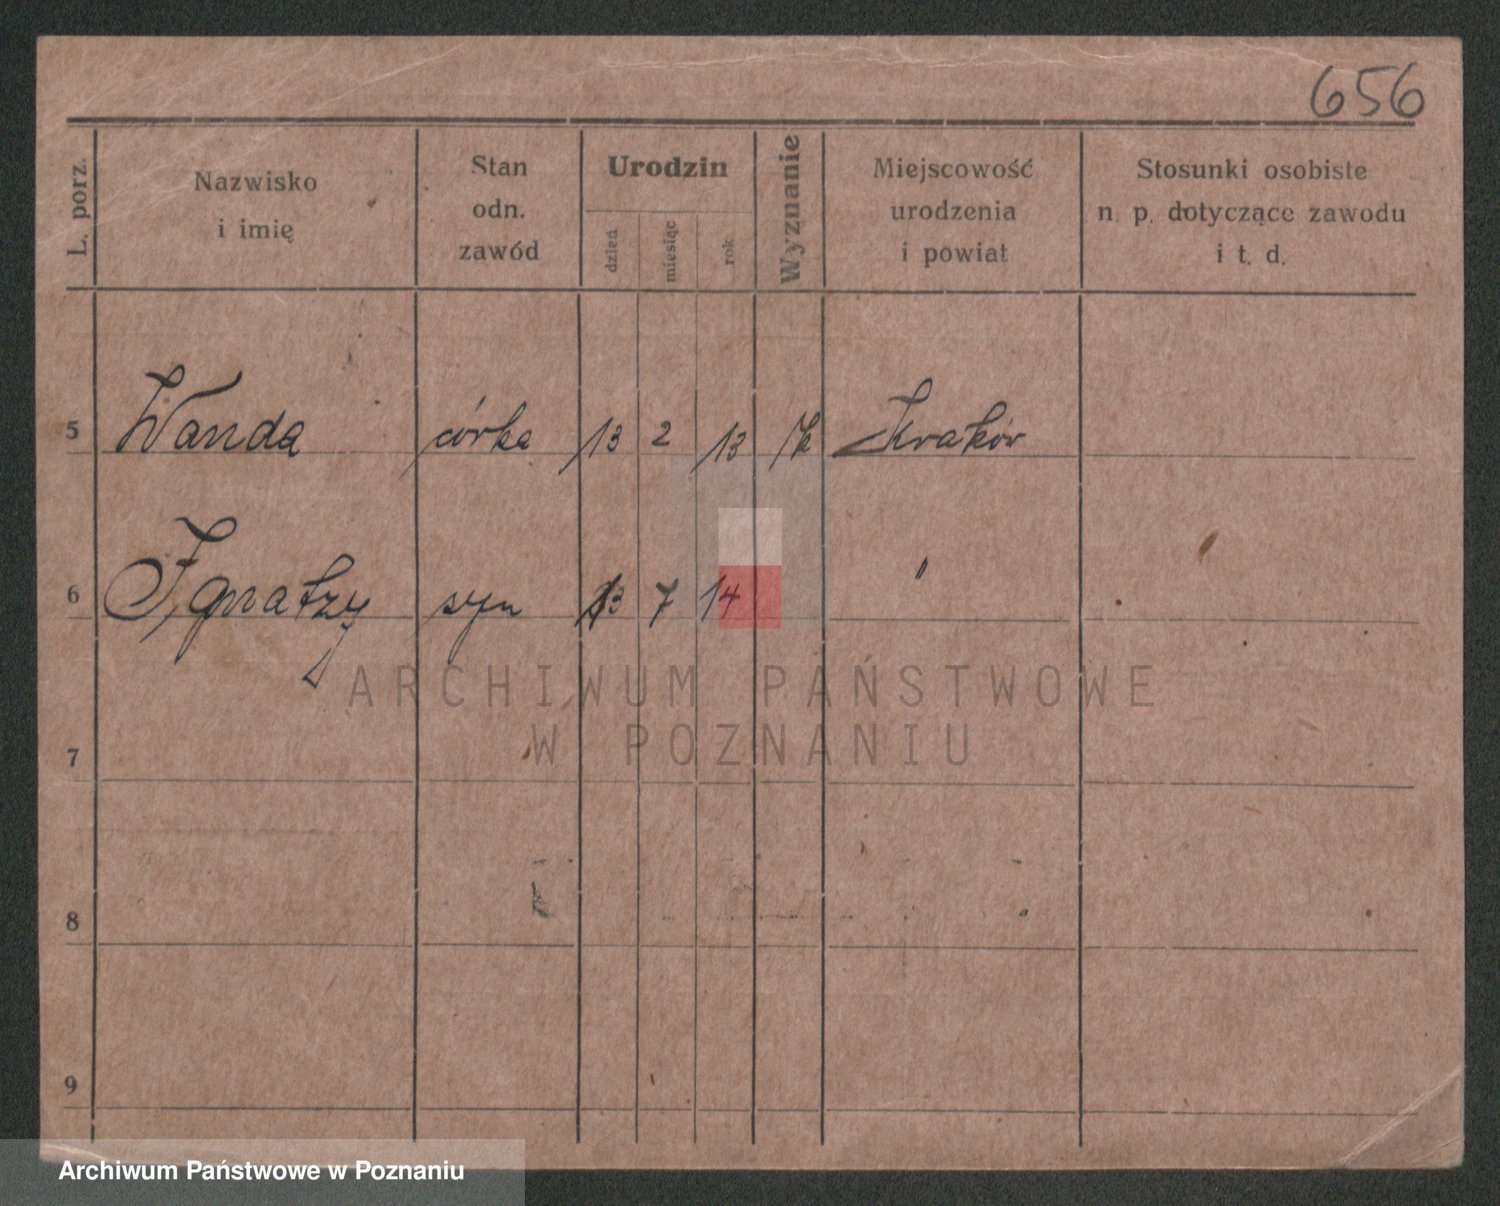 656
L. porz.
Nazwisko
i imię
Stan
odn.
zawód
Urodzin
dzień
miesiąc
rok
Wyznanie
Miejscowość
urodzenia
i powiat
Stosunki osobiste
n. p. dotyczące zawodu
i t. d.
5 Wanda córka 13 2 13 Kraków
6 Ignatzy syn 13 7 14 "
7
8
9
ARCHIWUM PAŃSTWOWE
W POZNANIU
Archiwum Państwowe w Poznaniu